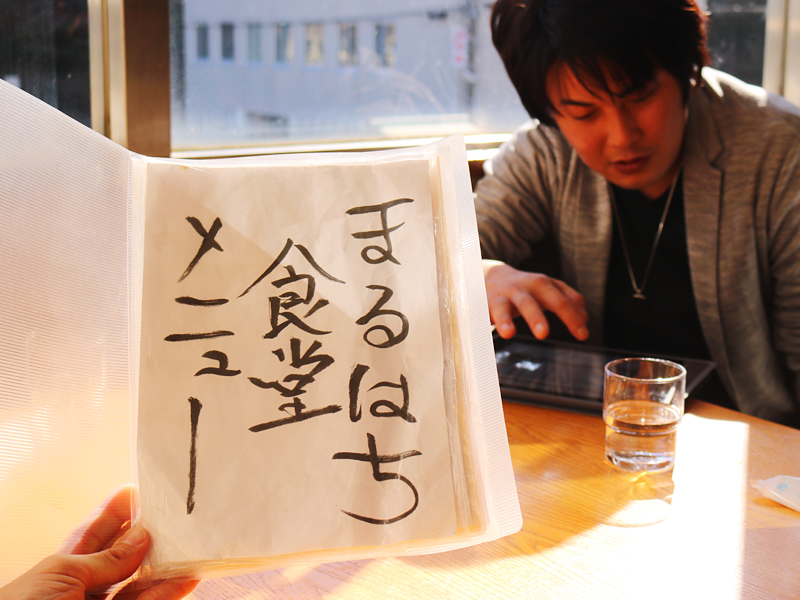 まるはち
食堂
メニュー